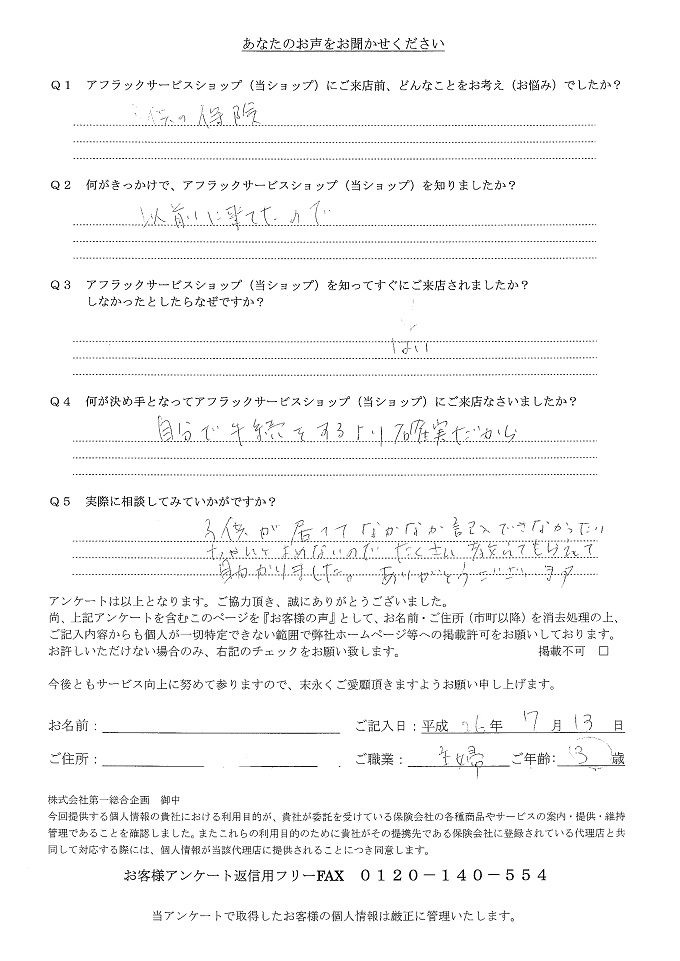 あなたのお声をお聞かせください
Q1 アフラックサービスショップ（当ショップ）にご来店前、どんなことをお考え（お悩み）でしたか？
子供の保険
Q2 何がきっかけで、アフラックサービスショップ（当ショップ）を知りましたか？
以前に来てたので
Q3 アフラックサービスショップ（当ショップ）を知ってすぐにご来店されましたか？
しなかったとしたらなぜですか？
はい
Q4 何が決め手となってアフラックサービスショップ（当ショップ）にご来店なさいましたか？
自分で手続をするより確実だから
Q5 実際に相談してみていかがですか？
子供が居てなかなか記入できなかったり
よめないので たくさん 教えてもらえて
助かりました。ありがとうございます
アンケートは以上となります。ご協力頂き、誠にありがとうございました。
尚、上記アンケートを含むこのページを『お客様の声』として、お名前・ご住所（市町以降）を消去処理の上、
ご記入内容からも個人が一切特定できない範囲で弊社ホームページ等への掲載許可をお願いしております。
お許しいただけない場合のみ、右記のチェックをお願い致します。 掲載不可 □
今後ともサービス向上に努めて参りますので、末永くご愛顧頂きますようお願い申し上げます。
お名前： ご記入日：平成 26 年 7 月 13 日
ご住所： ご職業： 主婦 ご年齢： 3 歳
株式会社第一総合企画 御中
今回提供する個人情報の貴社における利用目的が、貴社が委託を受けている保険会社の各種商品やサービスの案内・提供・維持
管理であることを確認しました。またこれらの利用目的のために貴社がその提携先である保険会社に登録されている代理店と共
同して対応する際には、個人情報が当該代理店に提供されることにつき同意します。
お客様アンケート返信用フリーFAX 0120－140－554
当アンケートで取得したお客様の個人情報は厳正に管理いたします。